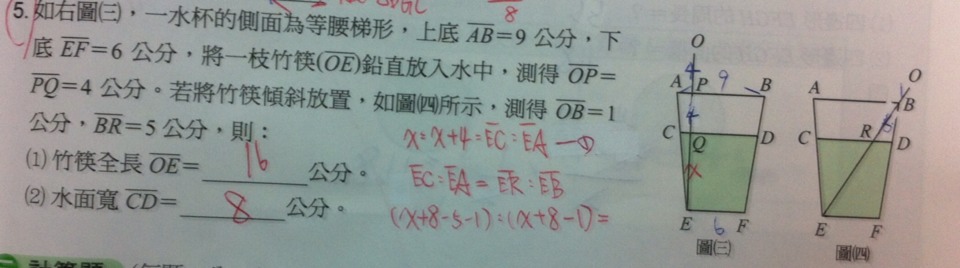 8
5. 如右圖㈢，一水杯的側面為等腰梯形，上底 AB=9 公分，下
底 EF=6 公分，將一枝竹筷(OE)鉛直放入水中，測得 OP=
PQ=4 公分。若將竹筷傾斜放置，如圖㈣所示，測得 OB=1
公分，BR=5 公分，則：
(1) 竹筷全長 OE= 16 公分。
(2) 水面寬 CD= 8 公分。
x : x+4 = EC : EA —①
EC : EA = ER : EB
(x+8-5-1) : (x+8-1) =
O
4
A P 9 B
4
C Q D
x
E 6 F
圖㈢
O
1
A B
5
C R D
E F
圖㈣